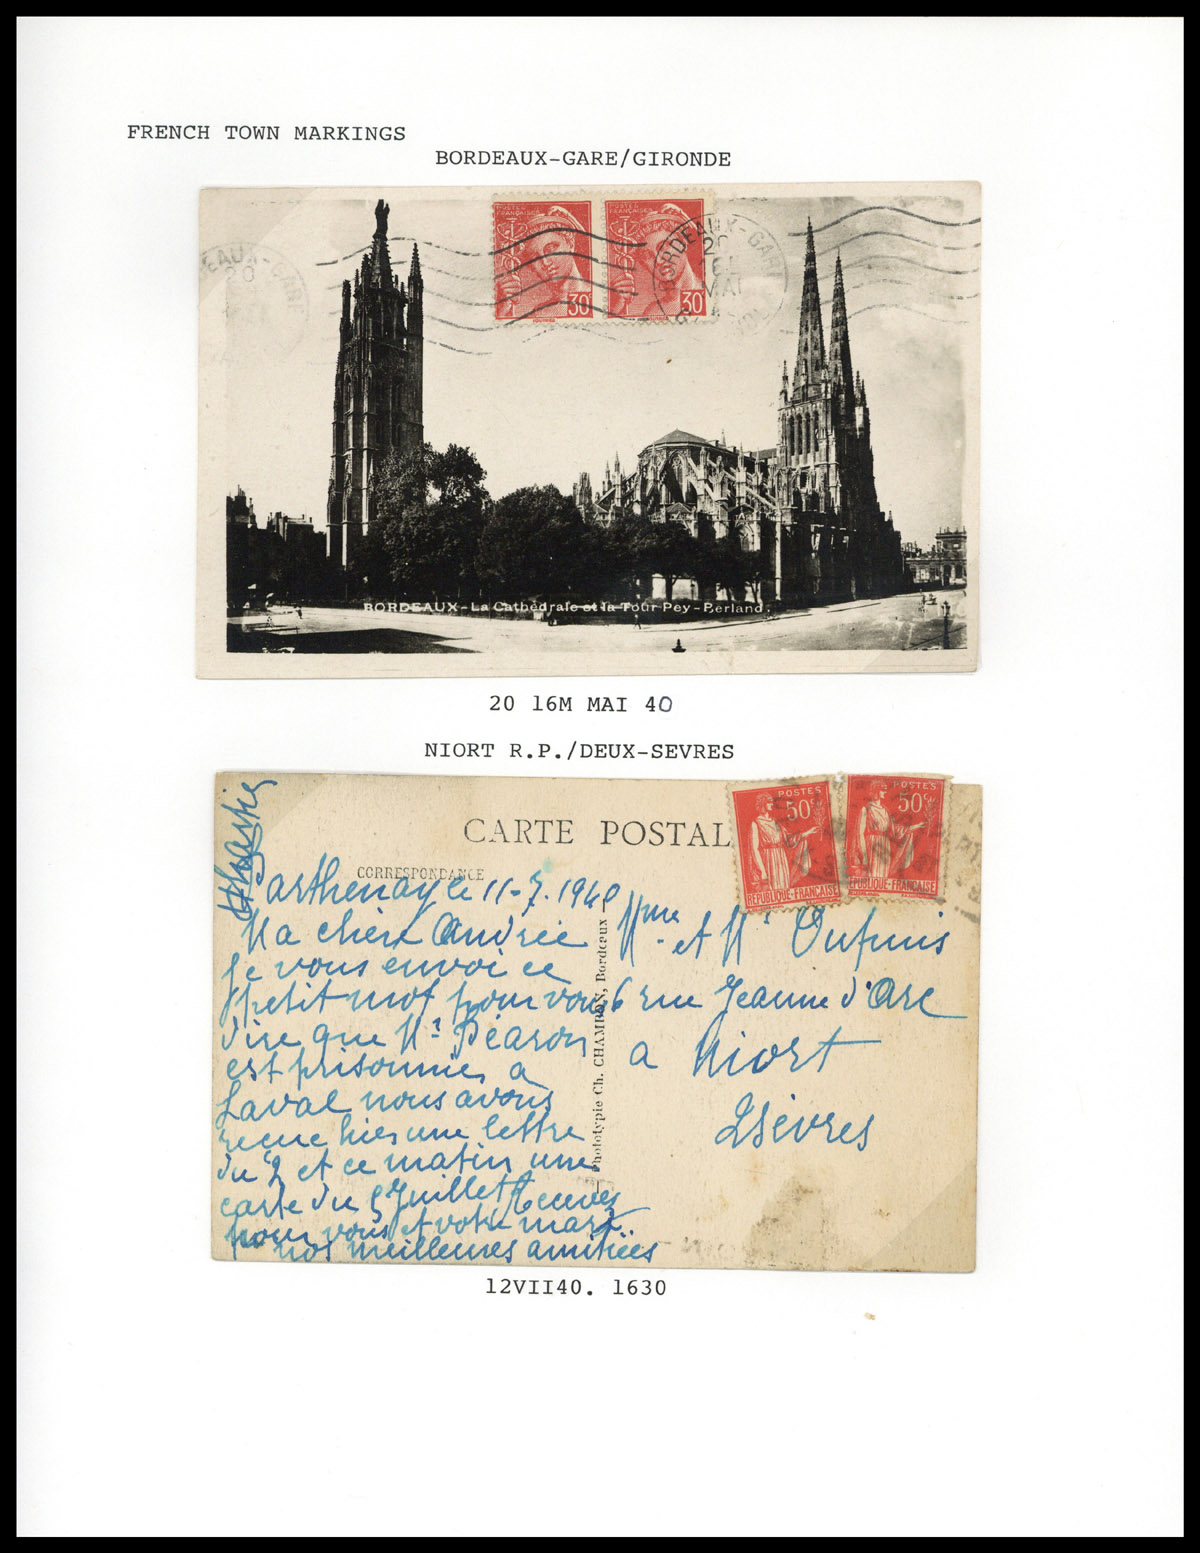 FRENCH TOWN MARKINGS
BORDEAUX-GARE/GIRONDE
POSTES FRANÇAISES
30
POSTES FRANÇAISES
30
EAUX-GARE
20
BORDEAUX-GARE
20
MAI
BORDEAUX - La Cathédrale et la Tour Pey-Berland.
20 16M MAI 40
NIORT R.P./DEUX-SEVRES
CARTE POSTAL
CORRESPONDANCE
POSTES
50c
REPUBLIQUE-FRANÇAISE
POSTES
50c
REPUBLIQUE-FRANÇAISE
Parthenay le 11-7.1940
Ma chère Andrée
Je vous envoi ce
petit mot pour vous
dire que Mr
est prisonnier a
Laval nous avons
reçue hier une lettre
du 2 et ce matin une
carte du 5 Juillet Recevez
pour vous et votre mari
nos meilleures amitiées
Mme et Mr Dupuis
6 rue Jeanne d'Arc
a Niort
2 Sèvres
Phototypie Ch. CHAMBON, Bordeaux
12VII40. 1630